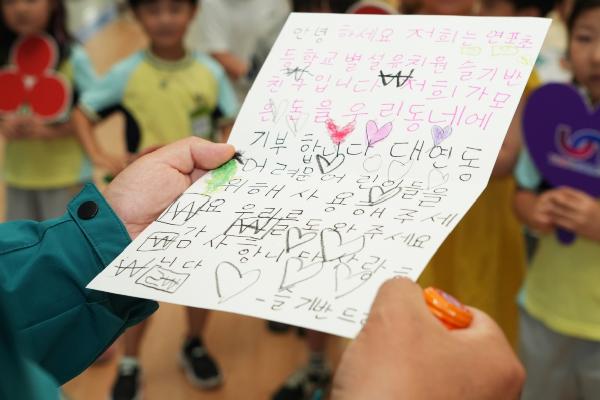 안녕 하세요 저희는 연포초
등학교 병설유치원 슬기반
친구입니다 저희가 모
은돈을 우리동네에
기부 합니다 대연동
어려운 어린이들을
위해 사용해 주세
요
감사 합니다 사랑
니다
-슬기반드림